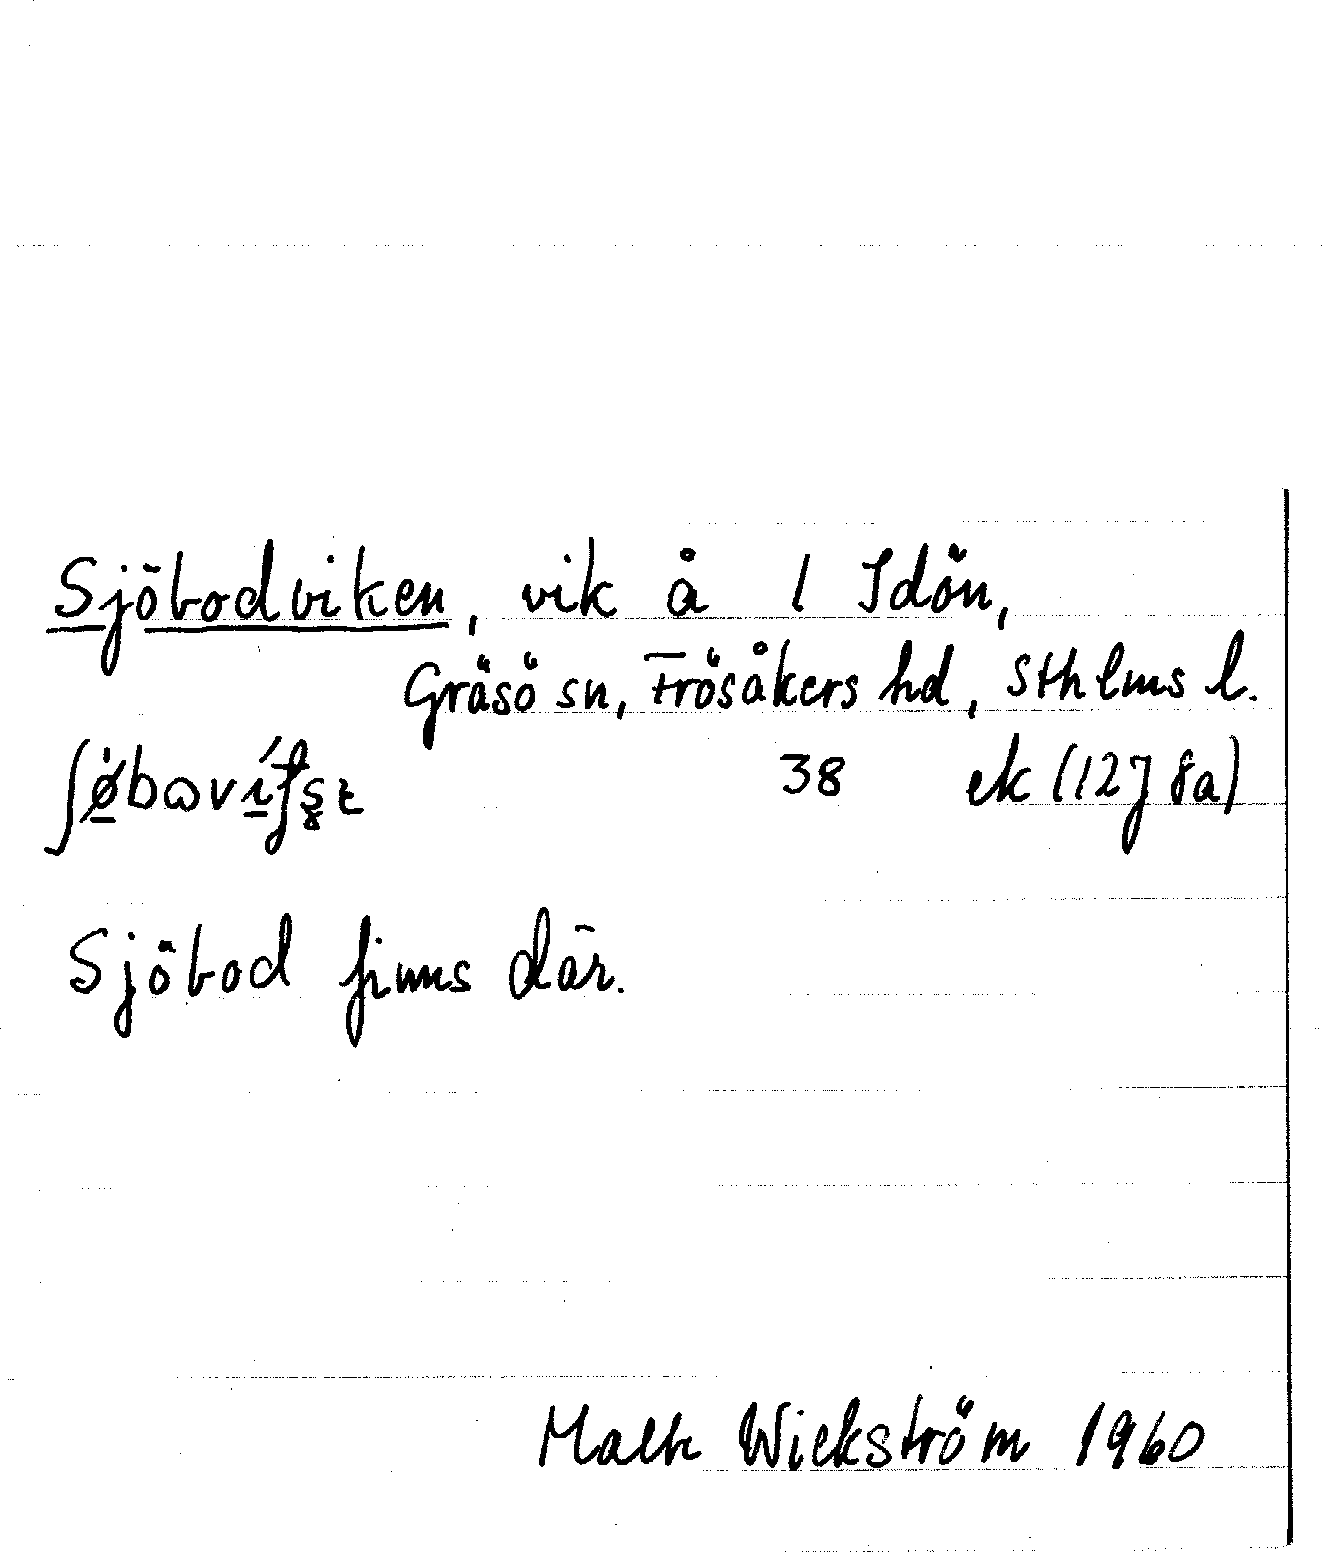 Sjöbodviken, vik å l Idön,
Gräsö sn, Frösåkers hd, Sthlms l.
38 ek (12I 8a)
Sjöbod finns där.
Wickström 1960